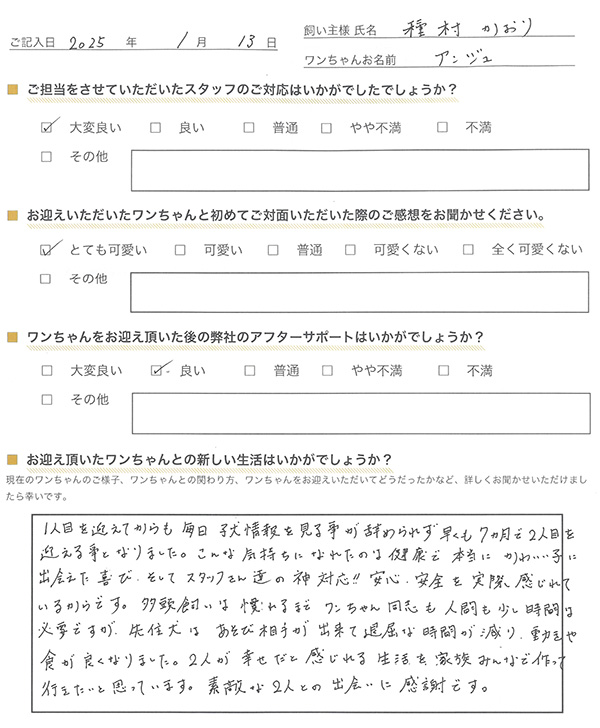 ご記入日 2025 年 1 月 13 日
飼い主様 氏名 種村 かおり
ワンちゃんお名前 アンジュ
■ ご担当をさせていただいたスタッフのご対応はいかがでしたでしょうか？
☑ 大変良い □ 良い □ 普通 □ やや不満 □ 不満
□ その他
■ お迎えいただいたワンちゃんと初めてご対面いただいた際のご感想をお聞かせください。
☑ とても可愛い □ 可愛い □ 普通 □ 可愛くない □ 全く可愛くない
□ その他
■ ワンちゃんをお迎え頂いた後の弊社のアフターサポートはいかがでしょうか？
□ 大変良い ☑ 良い □ 普通 □ やや不満 □ 不満
□ その他
■ お迎え頂いたワンちゃんとの新しい生活はいかがでしょうか？
現在のワンちゃんのご様子、ワンちゃんとの関わり方、ワンちゃんをお迎えいただいてどうだったかなど、詳しくお聞かせいただけまし
たら幸いです。
1人目を迎えてからも毎日子犬情報を見る事が辞められず早くも7カ月で2人目を
迎える事となりました。こんな気持ちになれたのは健康で本当にかわいい子に
出会えた喜び、そしてスタッフさん達の神対応!! 安心、安全を実際感じれて
いるからです。多頭飼いは慣れるまでワンちゃん同志も人間も少し時間は
必要ですが、先住犬はあそび相手が出来て退屈な時間が減り、動きや
食が良くなりました。2人が幸せだと感じれる生活を家族みんなで作って
行きたいと思っています。素敵な2人との出会いに感謝です。